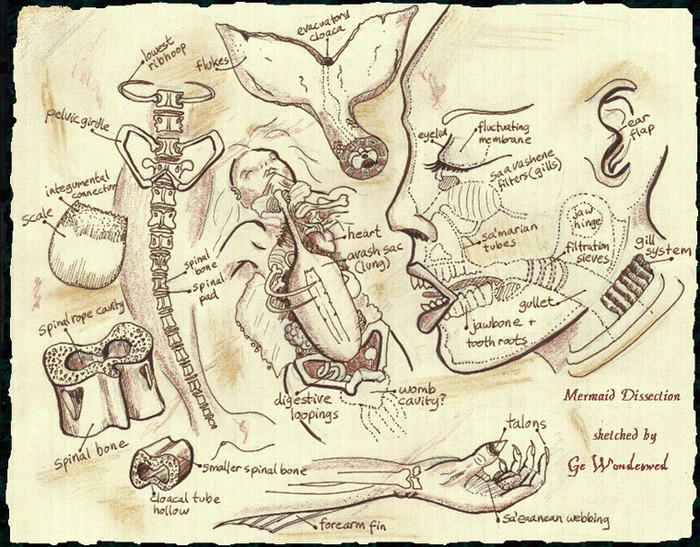 lowest
ribhoop
pelvic girdle
integumental
connector
scale
spinal
bone
spinal
pad
spinal rope cavity
Spinal bone
smaller spinal bone
cloacal tube
hollow
flukes
evacuatory
cloaca
heart
avash sac
(lung)
digestive
loopings
womb
cavity?
eyelid
fluctuating
membrane
saavashene
filters (gills)
sa'marian
tubes
jaw
hinge
filtration
sieves
gullet
jawbone +
tooth roots
ear
flap
gill
system
Mermaid Dissection
sketched by
Ge Wonderwed
talons
sa'eanean webbing
forearm fin